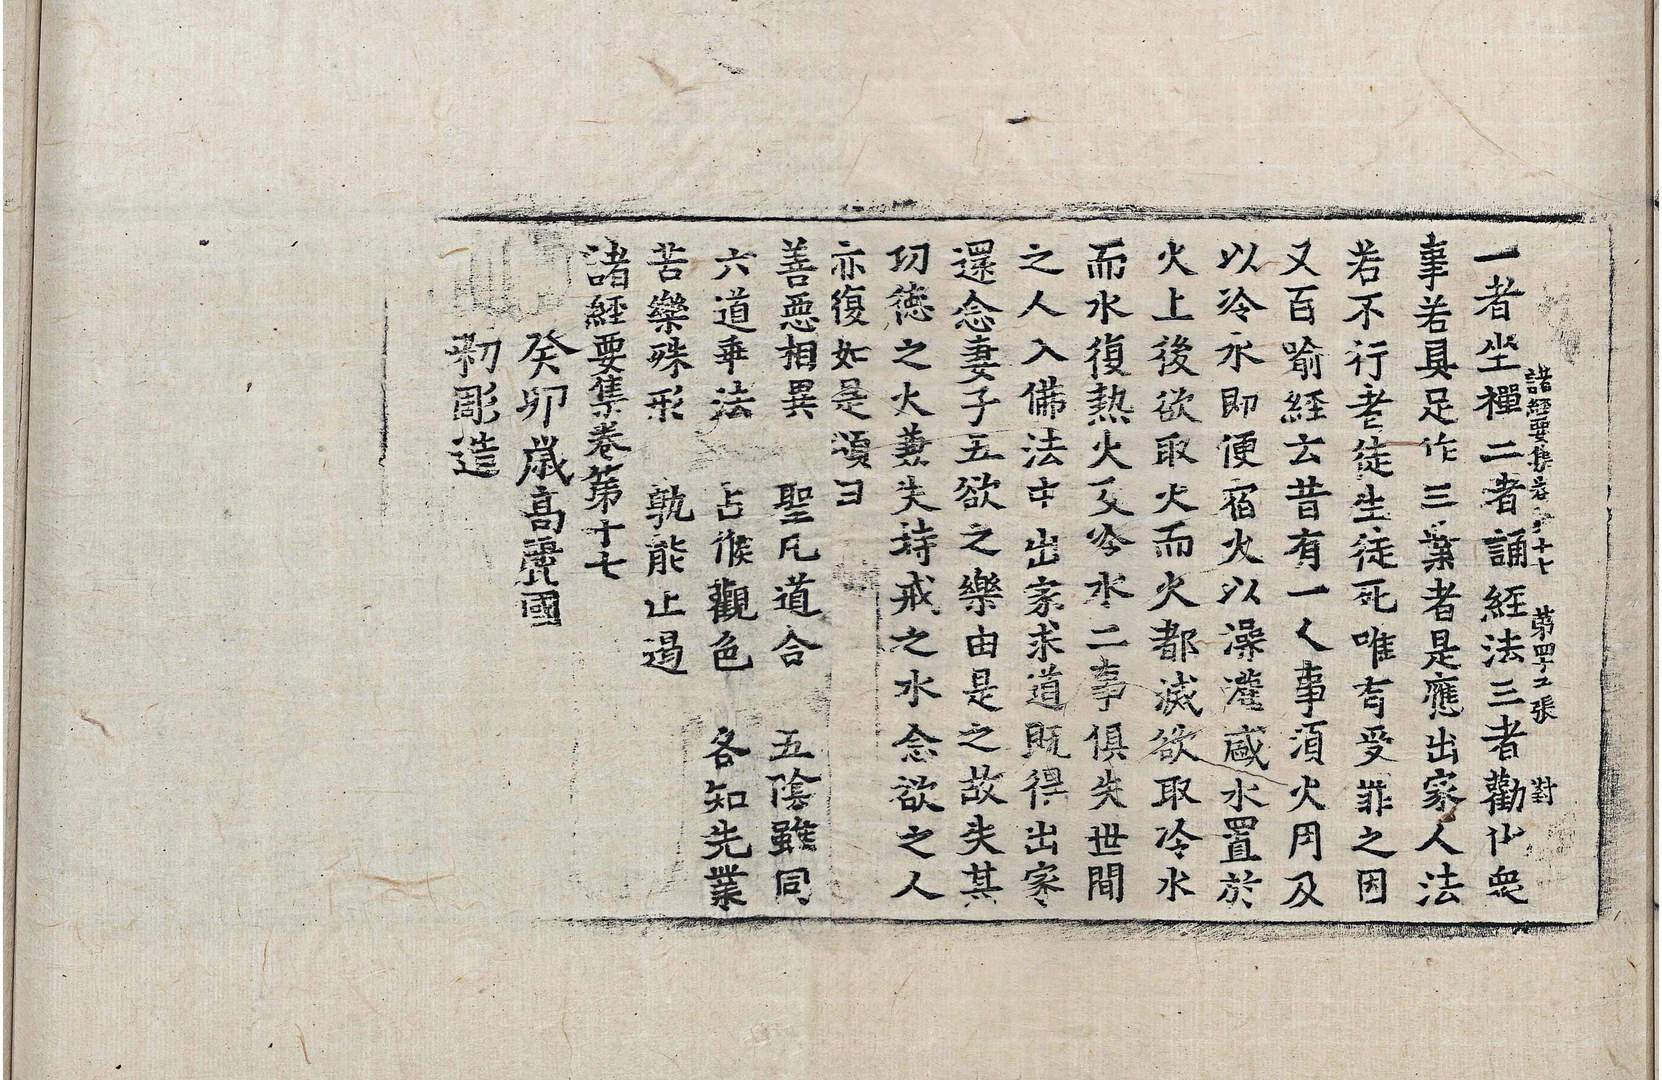 諸經要集卷第十七 第四十二張 對
一者坐禪二者誦經法三者勸化衆
事若具足作三業者是應出家人法
若不行者徒生徒死唯有受罪之因
又百喻經云昔有一人事須火用及
以冷水即便宿火以澡灌盛水置於
火上後欲取火而火都滅欲取冷水
而水復熱火及冷水二事俱失世間
之人入佛法中出家求道既得出家
還念妻子五欲之樂由是之故失其
功德之火兼失持戒之水念欲之人
亦復如是頌曰
善惡相異 聖凡道合 五陰雖同
六道乖法 占候觀色 各知先業
苦樂殊形 孰能止遏
諸經要集卷第十七
癸卯歲高麗國
彫造